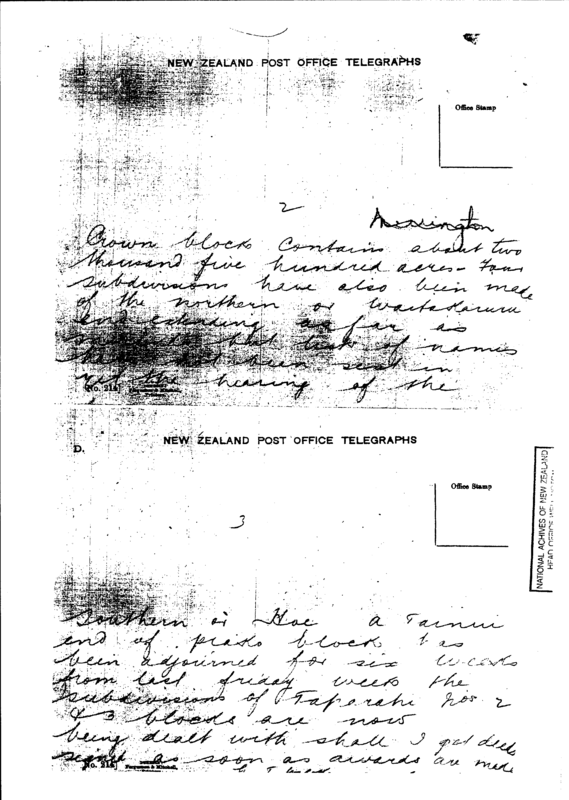 NEW ZEALAND POST OFFICE TELEGRAPHS
Office Stamp
2
Crown block contains about two
thousand five hundred acres - Four
subdivisions have also been made
of the northern or Waitakaruru
end extending as far as
but of names
have not been sent in
yet the hearing of the
[No. 214]
D.
NEW ZEALAND POST OFFICE TELEGRAPHS
Office Stamp
3
NATIONAL ACHIVES OF NEW ZEALAND
HEAD OFFICE
Southern or Hoe a Tainui
end of piako block has
been adjourned for six weeks
from last friday week the
subdivisions of Taparahi Nos 2
& 3 blocks are now
being dealt with shall I get deeds
signed as soon as awards are made
[No. 214]